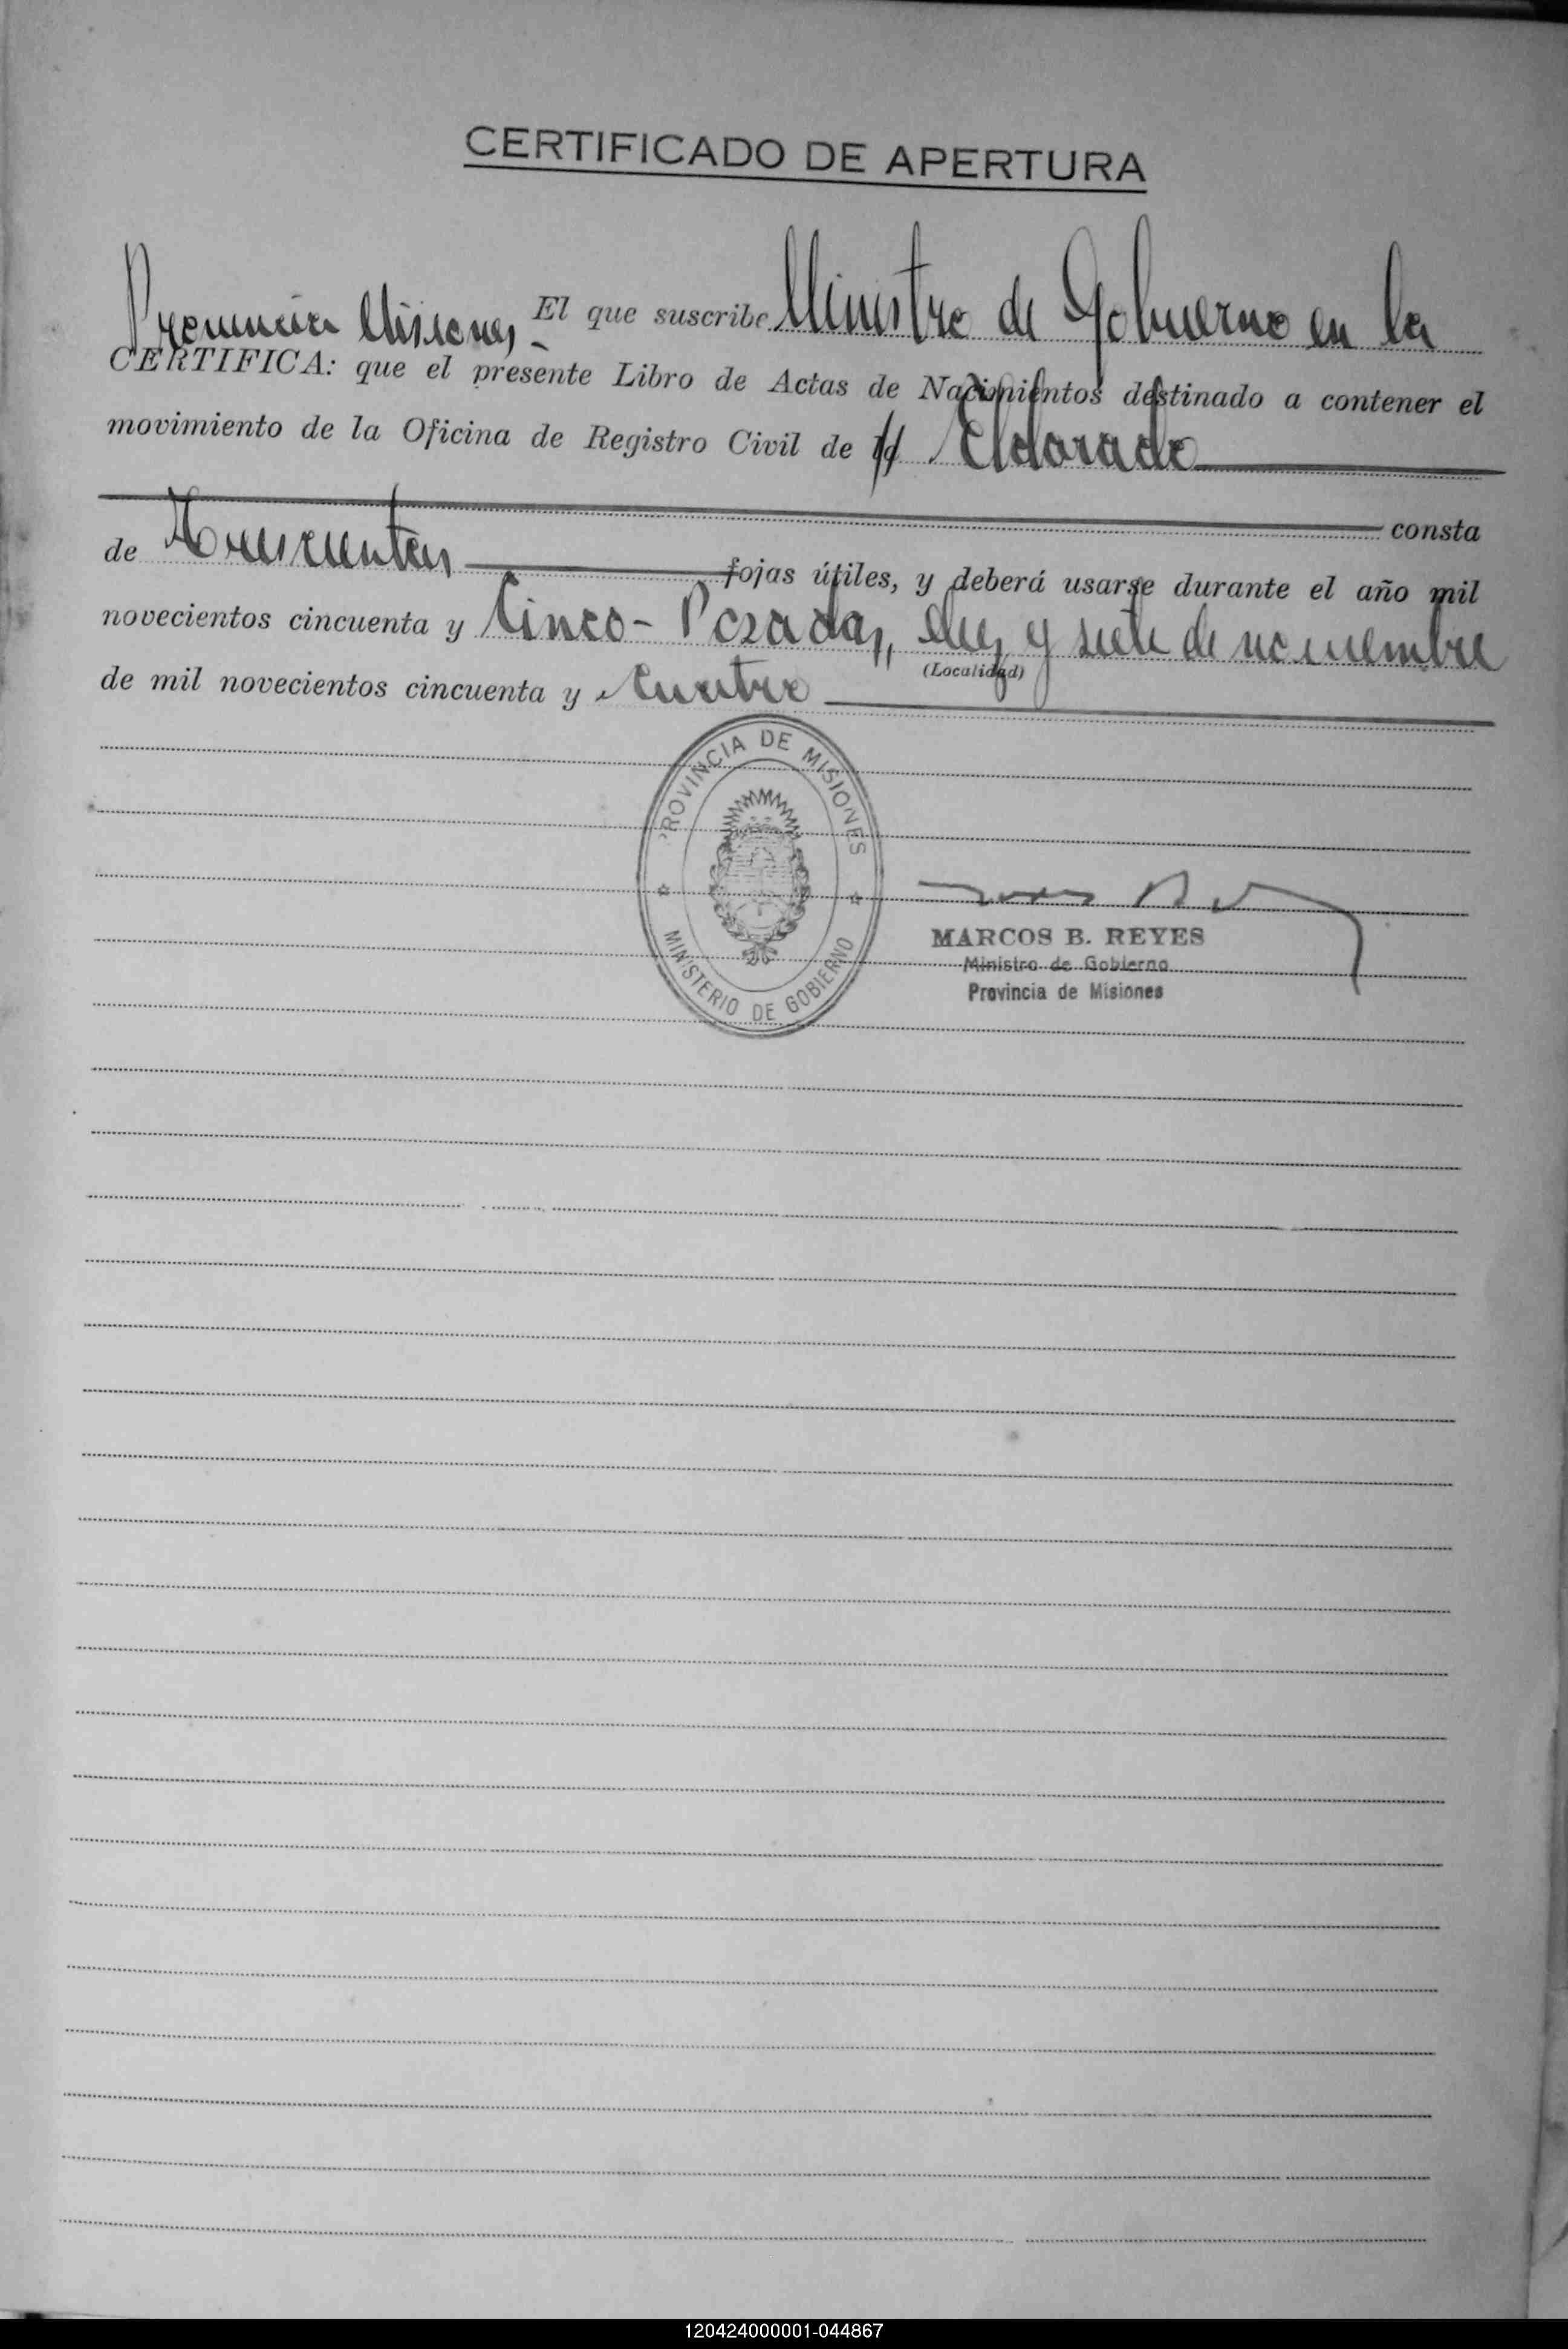 CERTIFICADO DE APERTURA
El que suscribe Ministro de Gobierno en la
Provincia Misiones.-
CERTIFICA: que el presente Libro de Actas de Nacimientos destinado a contener el
movimiento de la Oficina de Registro Civil de Eldorado
consta
de Trescientas fojas útiles, y deberá usarse durante el año mil
novecientos cincuenta y Cinco - Posadas, diez y siete de noviembre
(Localidad)
de mil novecientos cincuenta y Cuatro
PROVINCIA DE MISIONES
MINISTERIO DE GOBIERNO
MARCOS B. REYES
Ministro de Gobierno
Provincia de Misiones
120424000001-044867